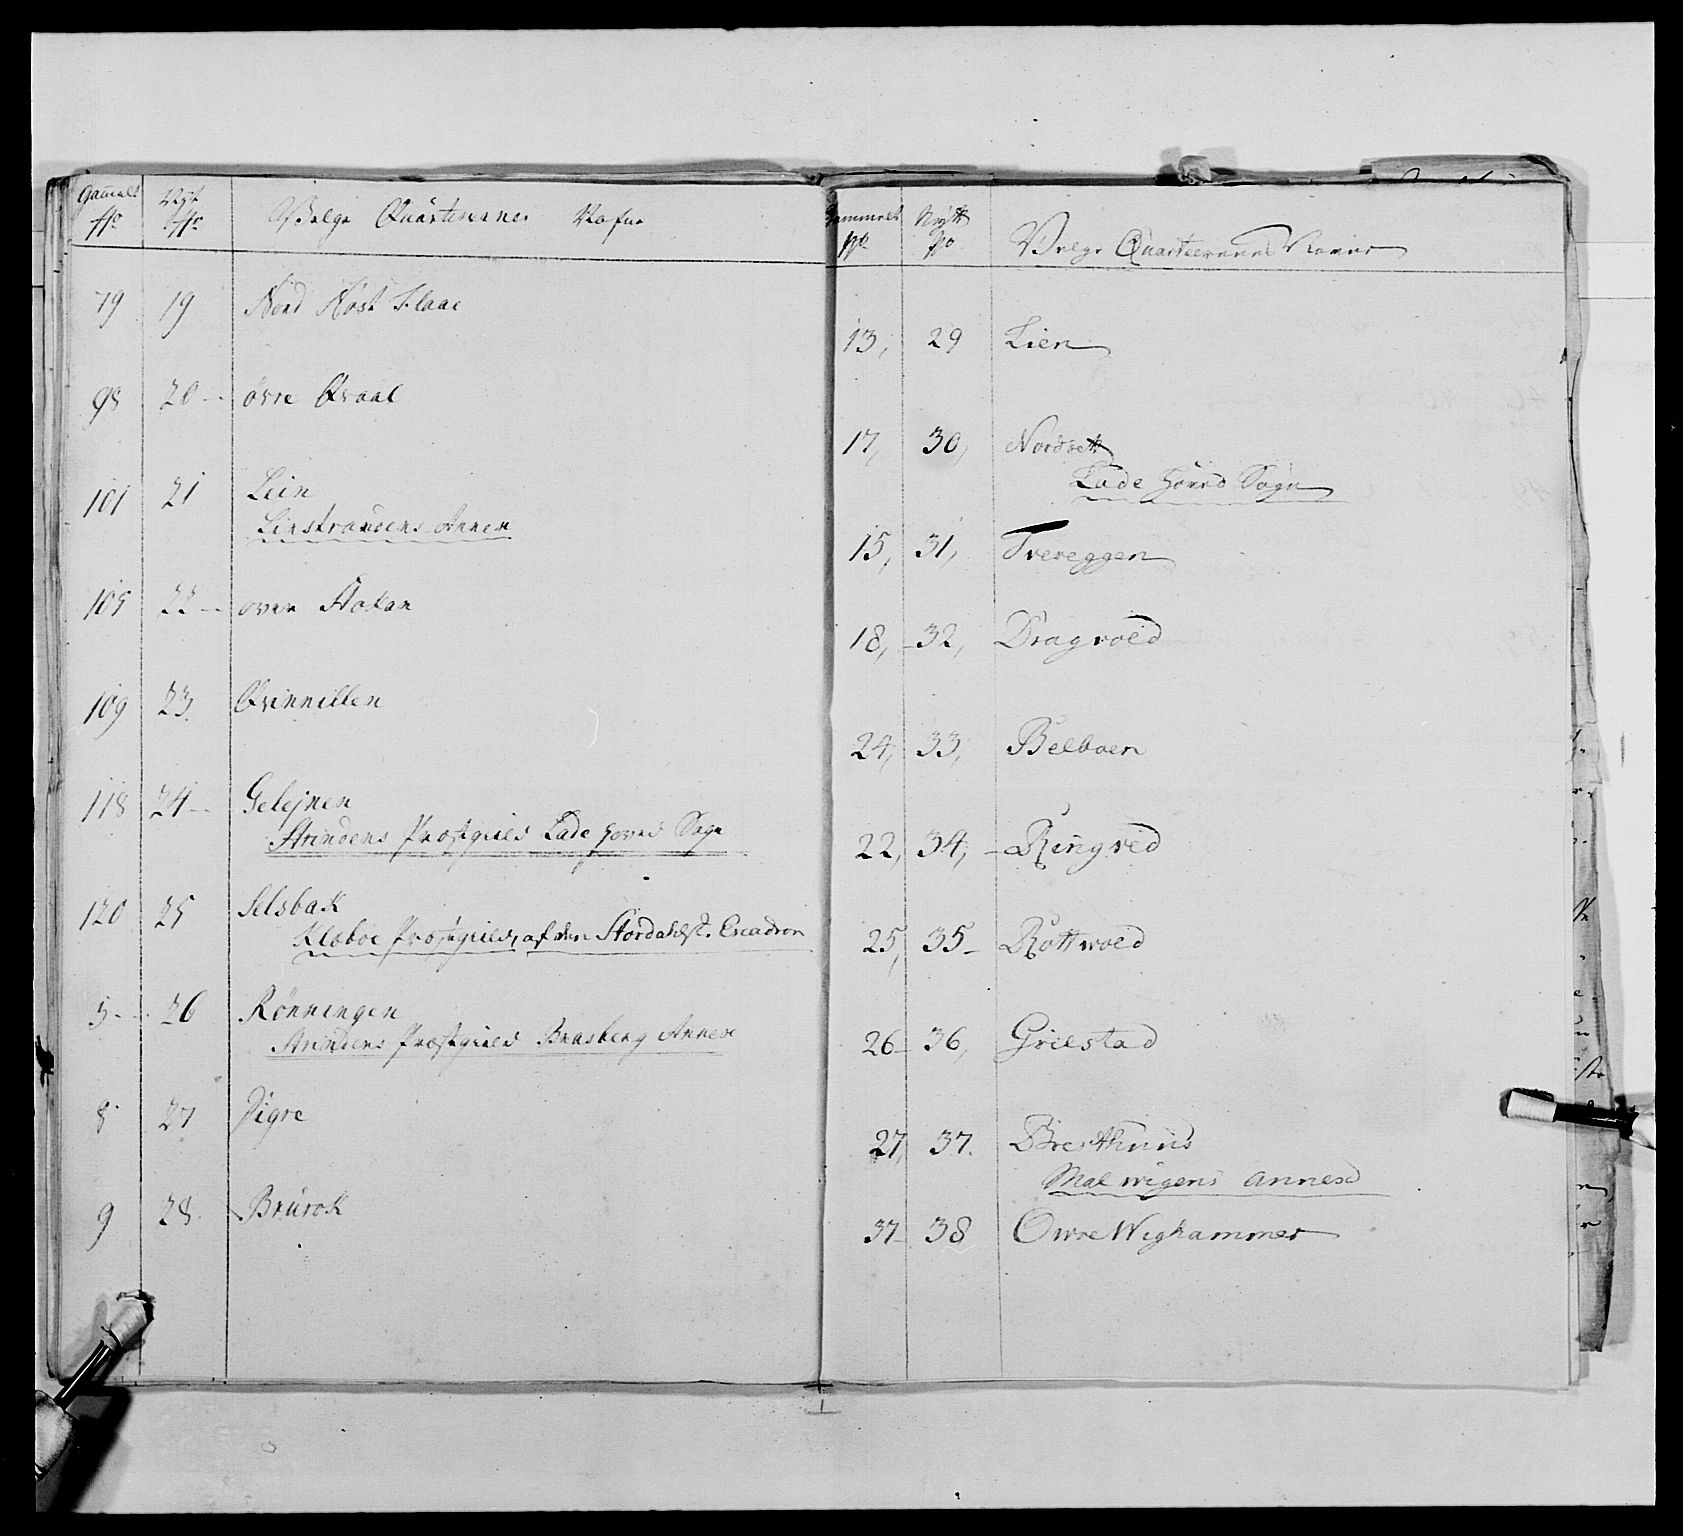 Gammelt No Nyt No Velge Quarterernes Nafne
79 19 Nord Høst Flaae
98 20 øvre Qvaal
101 21 Lein
Leinstrandens Annex
105 22 over Hokan
109 23 Qvennillen
118 24 Gelejnen
Strindens Præstgield Lade Hoved Sogn
120 25 Selsbak
Klæboe Præstgield, af den Stordahlst. Escadron
5 26 Rønningen
Strindens Præstgield Brasberg Annex
8 27 Digre
9 28 Brurok
Gammelt No Nytt No Velge Quarteerernes Navne
13, 29 Lien
17, 30, Nordsett
Lade Hoved Sogn
15, 31, Tvereggen
18, 32, Dragvold
24, 33, Belboen
22, 34, Ringved
25, 35 Rottwold
26 36, Grilstad
27, 37. Presthuus
Malwigens Annexd
37 38 Owre Wighammer